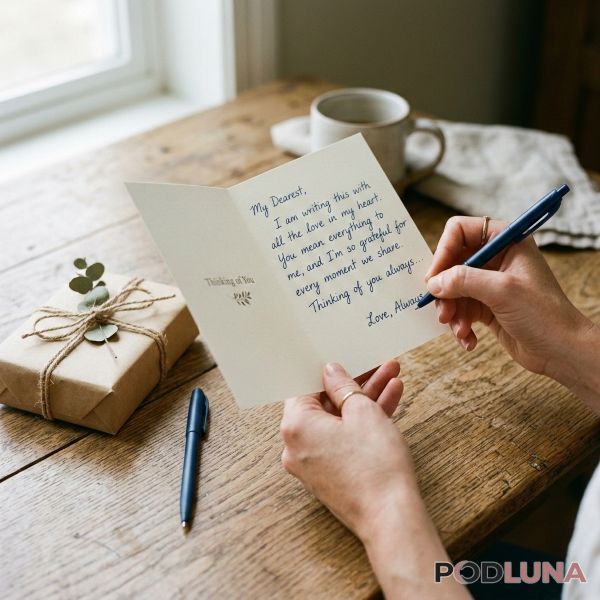 Thinking of You
My Dearest,
I am writing this with
all the love in my heart.
You mean everything to
me, and I'm so grateful for
every moment we share.
Thinking of you always...
Love, Always
PODLUNA